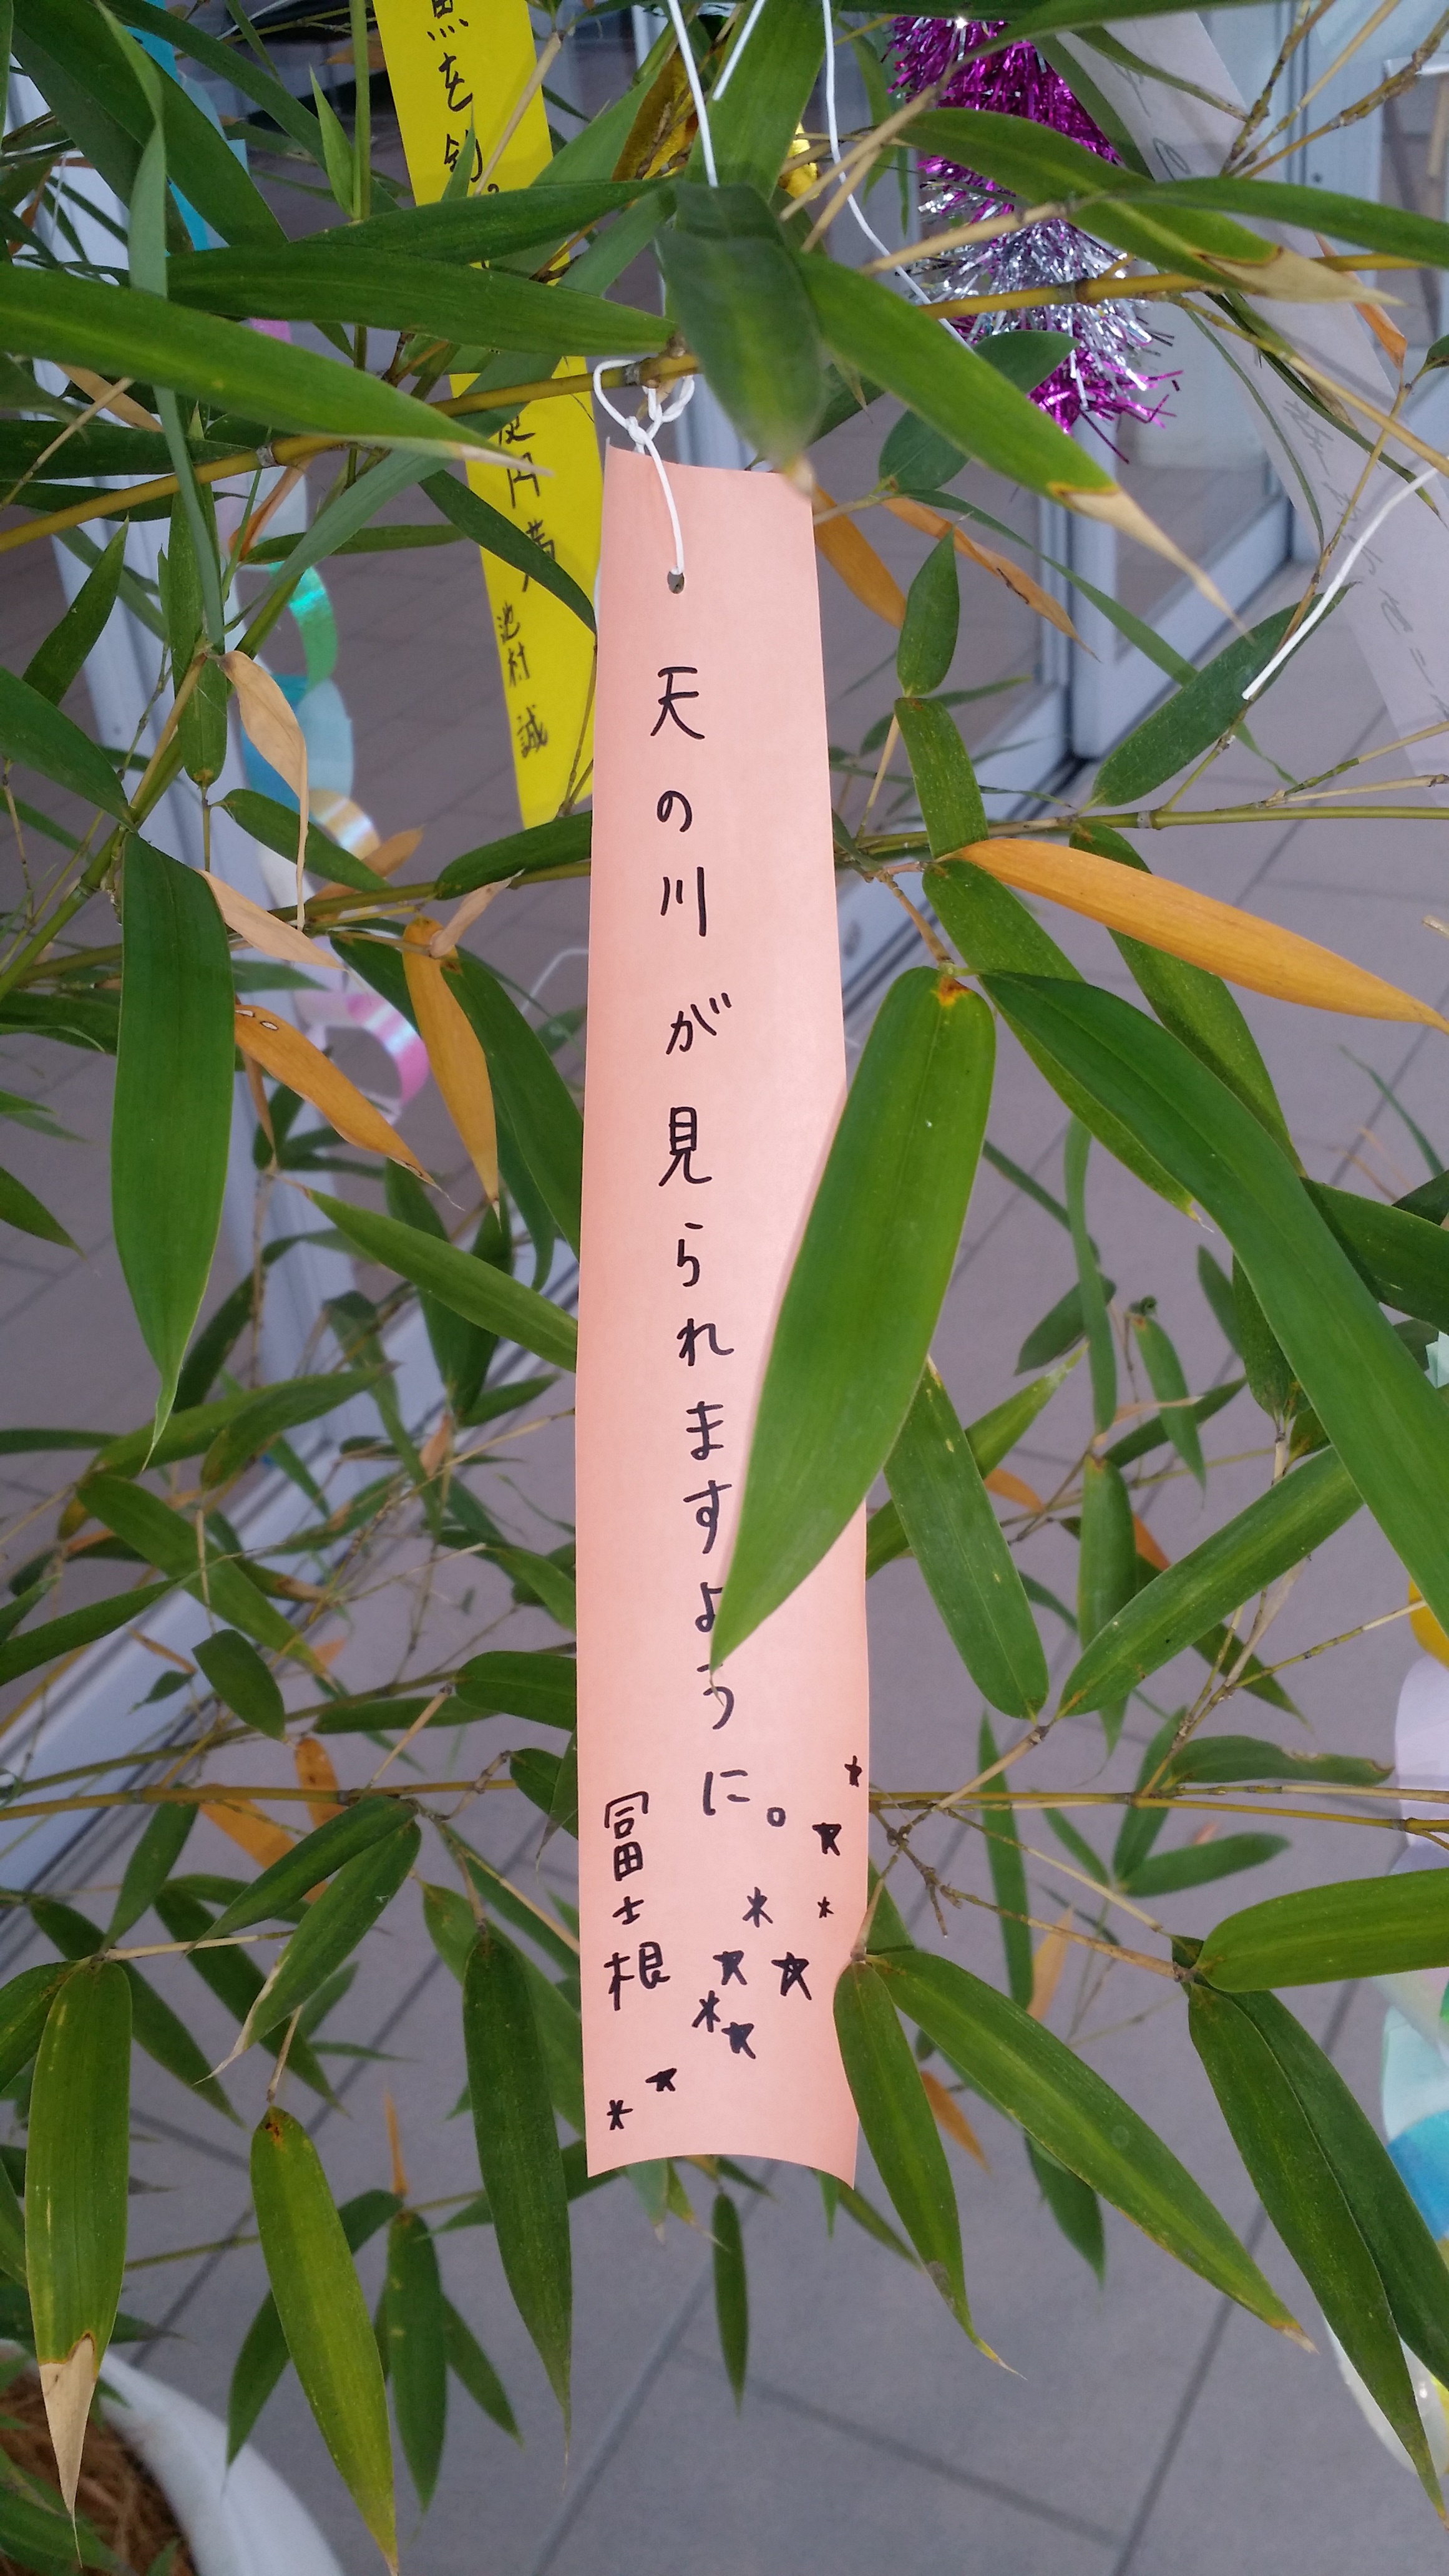 天の川が見られますように。
冨士根
魚を釣
池村 誠